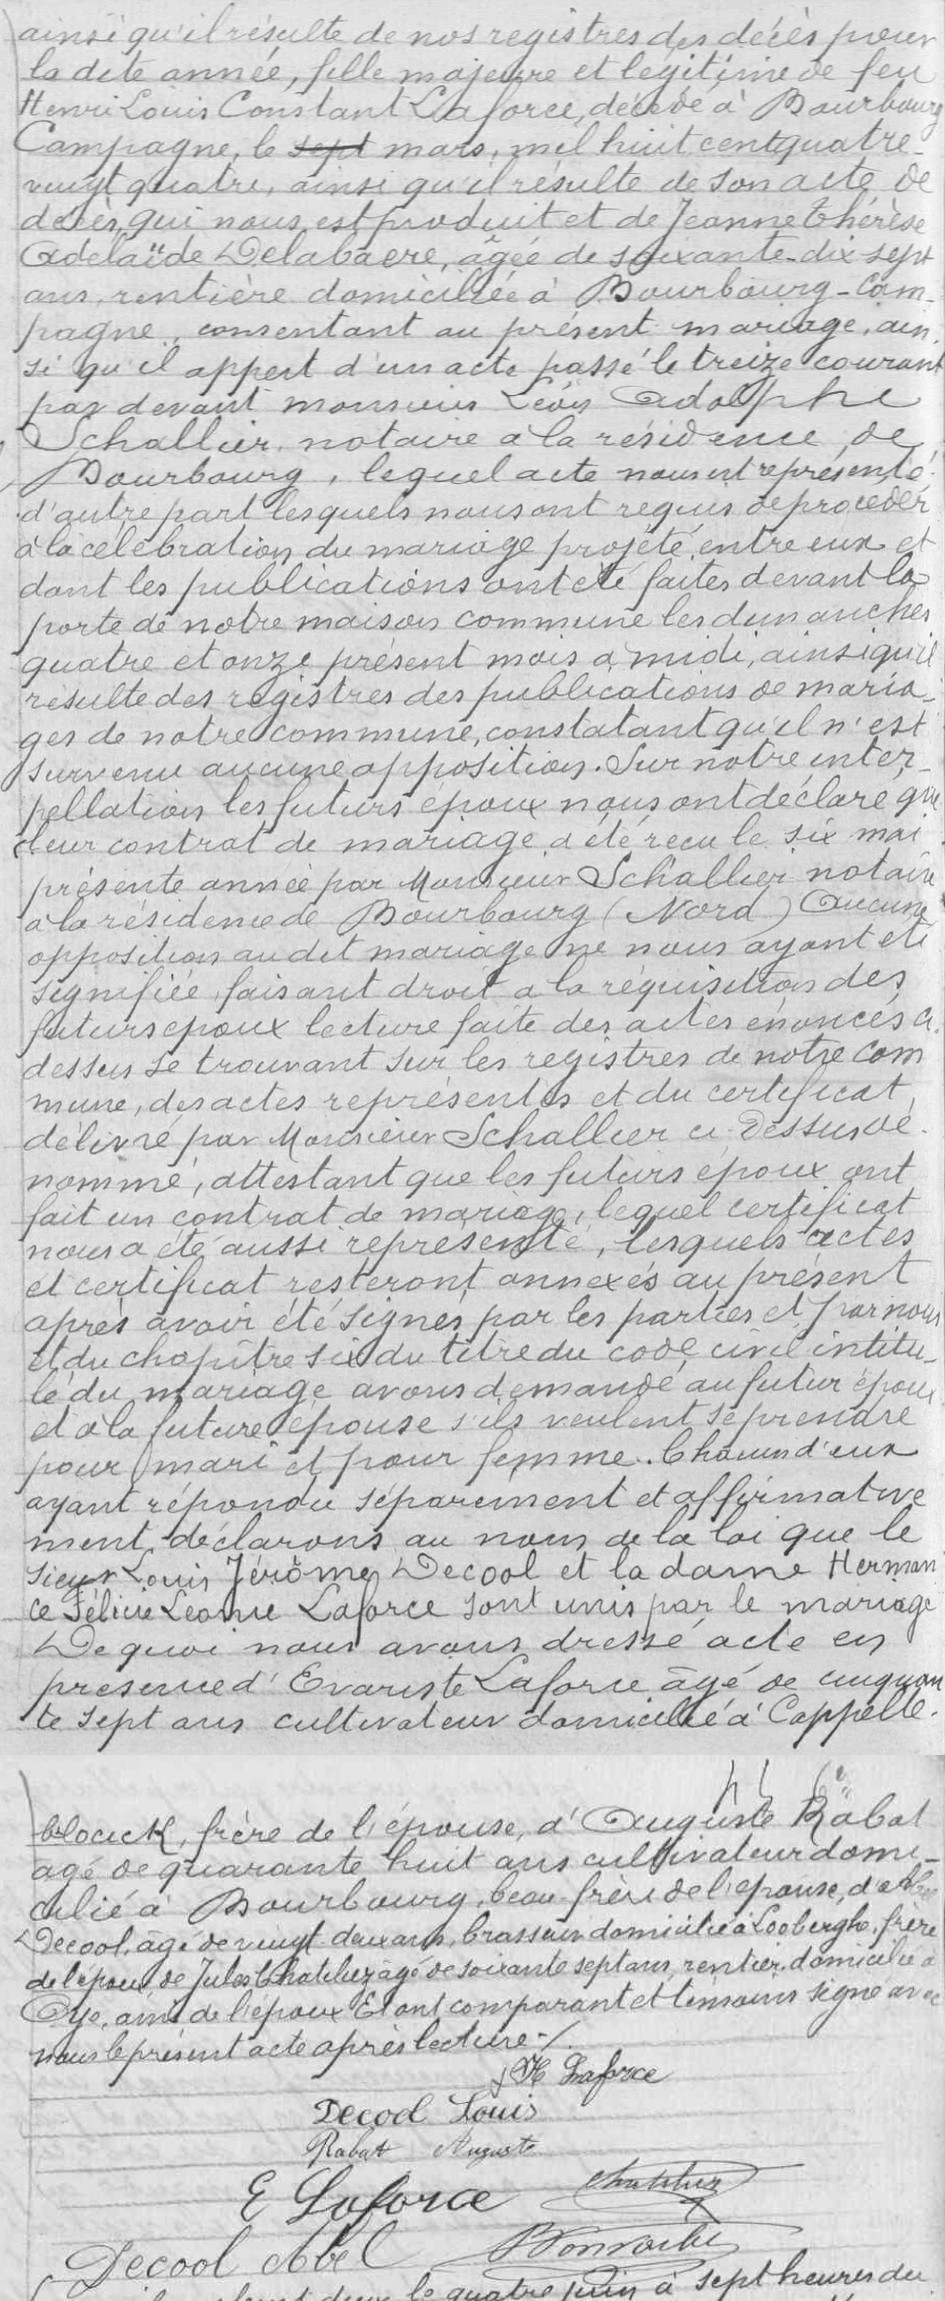 ainsi qu'il résulte de nos registres des décès pour
la dite année, fille majeure et légitime de feu
Henri Louis Constant Laforce, décédé à Bourbourg
Campagne, le sept mars, mil huit cent quatre-
vingt quatre, ainsi qu'il résulte de son acte de
décès, qui nous est produit et de Jeanne Thérèse
Adelaïde Delabaere, âgée de soixante-dix-sept
ans, rentière domiciliée à Bourbourg-Cam-
pagne, consentant au présent mariage, ain
si qu'il appert d'un acte passé le treize courant
par devant monsieur Léon Adolphe
Schallier, notaire à la résidence de
Bourbourg, lequel acte nous est représenté
d'autre part lesquels nous ont requis de procéder
à la célébration du mariage projeté entre eux et
dont les publications ont été faites devant la
porte de notre maison commune les dimanches
quatre et onze présent mois à midi, ainsi qu'il
résulte des registres des publications de maria-
ges de notre commune, constatant qu'il n'est
survenu aucune opposition. Sur notre inter-
pellation les futurs époux nous ont déclaré que
leur contrat de mariage a été reçu le six mai
présente année par Monsieur Schallier notaire
à la résidence de Bourbourg (Nord) Aucune
opposition au dit mariage ne nous ayant été
signifiée, faisant droit à la réquisition des
futurs époux lecture faite des actes énoncés ci-
dessus se trouvant sur les registres de notre com
mune, des actes représentés et du certificat,
délivré par Monsieur Schallier ci-Dessus dé-
nommé, attestant que les futurs époux ont
fait un contrat de mariage, lequel certificat
nous a été aussi représenté, lesquels actes
et certificat resteront annexés au présent
après avoir été signés par les parties et par nous
et du chapitre six du titre du code civil intitu-
lé du mariage avons demandé au futur époux
et à la future épouse s'ils veulent se prendre
pour mari et pour femme. Chacun d'eux
ayant répondu séparément et affirmative
ment, déclarons au nom de la loi que le
sieur Louis Jérôme Decool et la dame Herman
ce Félicie Léonie Laforce sont unis par le mariage
De quoi nous avons dressé acte en
présence d'Evariste Laforce âgé de cinquan
te sept ans cultivateur domicilié à Cappelle-
brouck, frère de l'épouse, d'Auguste Rabat
agé de quarante huit ans cultivateur domi-
cilié à Bourbourg, beau-frère de l'épouse, d'Abel
Decool, âgé de vingt-deux ans, brasseur domicilié à Looberghe, frère
de l'époux, de Jules Chatelez âgé de soixante sept ans, rentier, domicilié à
Oye, ami de l'époux Et ont comparant et témoins signé avec
nous le présent acte après lecture-/.
H Laforce
Decool Louis
Rabat Auguste
E Laforce
Decool Abel
le quatre juin à sept heures du